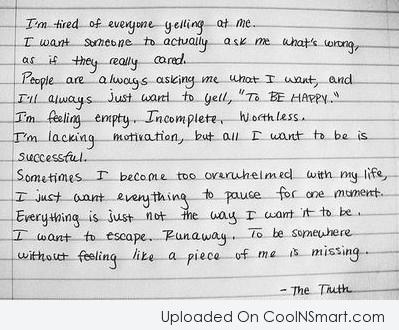 I'm tired of everyone yelling at me.
I want someone to actually ask me what's wrong,
as if they really cared.
People are always asking me what I want, and
I'll always just want to yell, "To BE HAPPY."
I'm feeling empty. Incomplete. Worthless.
I'm lacking motivation, but all I want to be is
successful.
Sometimes I become too overwhelmed with my life,
I just want everything to pause for one moment.
Everything is just not the way I want it to be.
I want to escape. Runaway. To be somewhere
without feeling like a piece of me is missing.
- The Truth
Uploaded On CoolNSmart.com